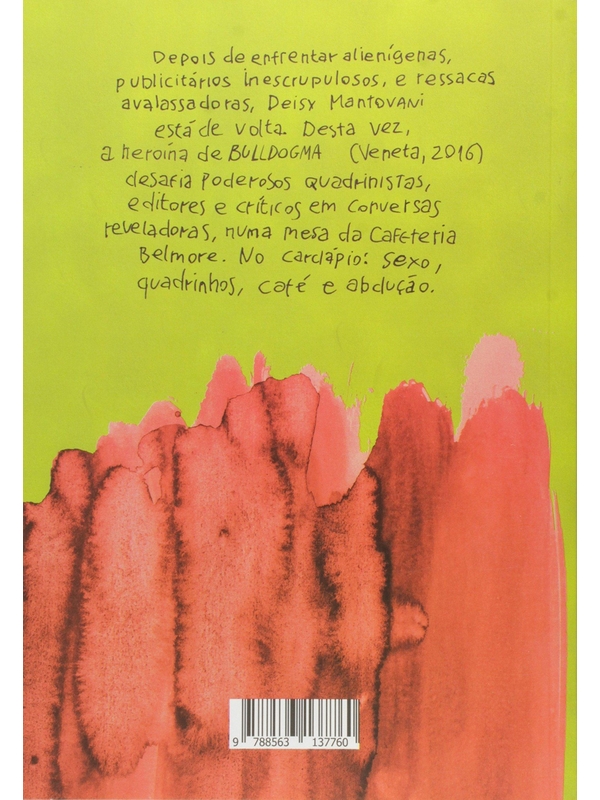 Depois de enfrentar alienígenas,
publicitários inescrupulosos, e ressacas
avalassadoras, Deisy Mantovani
está de volta. Desta vez,
a heroína de BULLDOGMA (Veneta, 2016)
desafia poderosos quadrinistas,
editores e críticos em conversas
reveladoras, numa mesa da Cafeteria
Belmore. No cardápio: sexo,
quadrinhos, café e abdução.
9 788563 137760